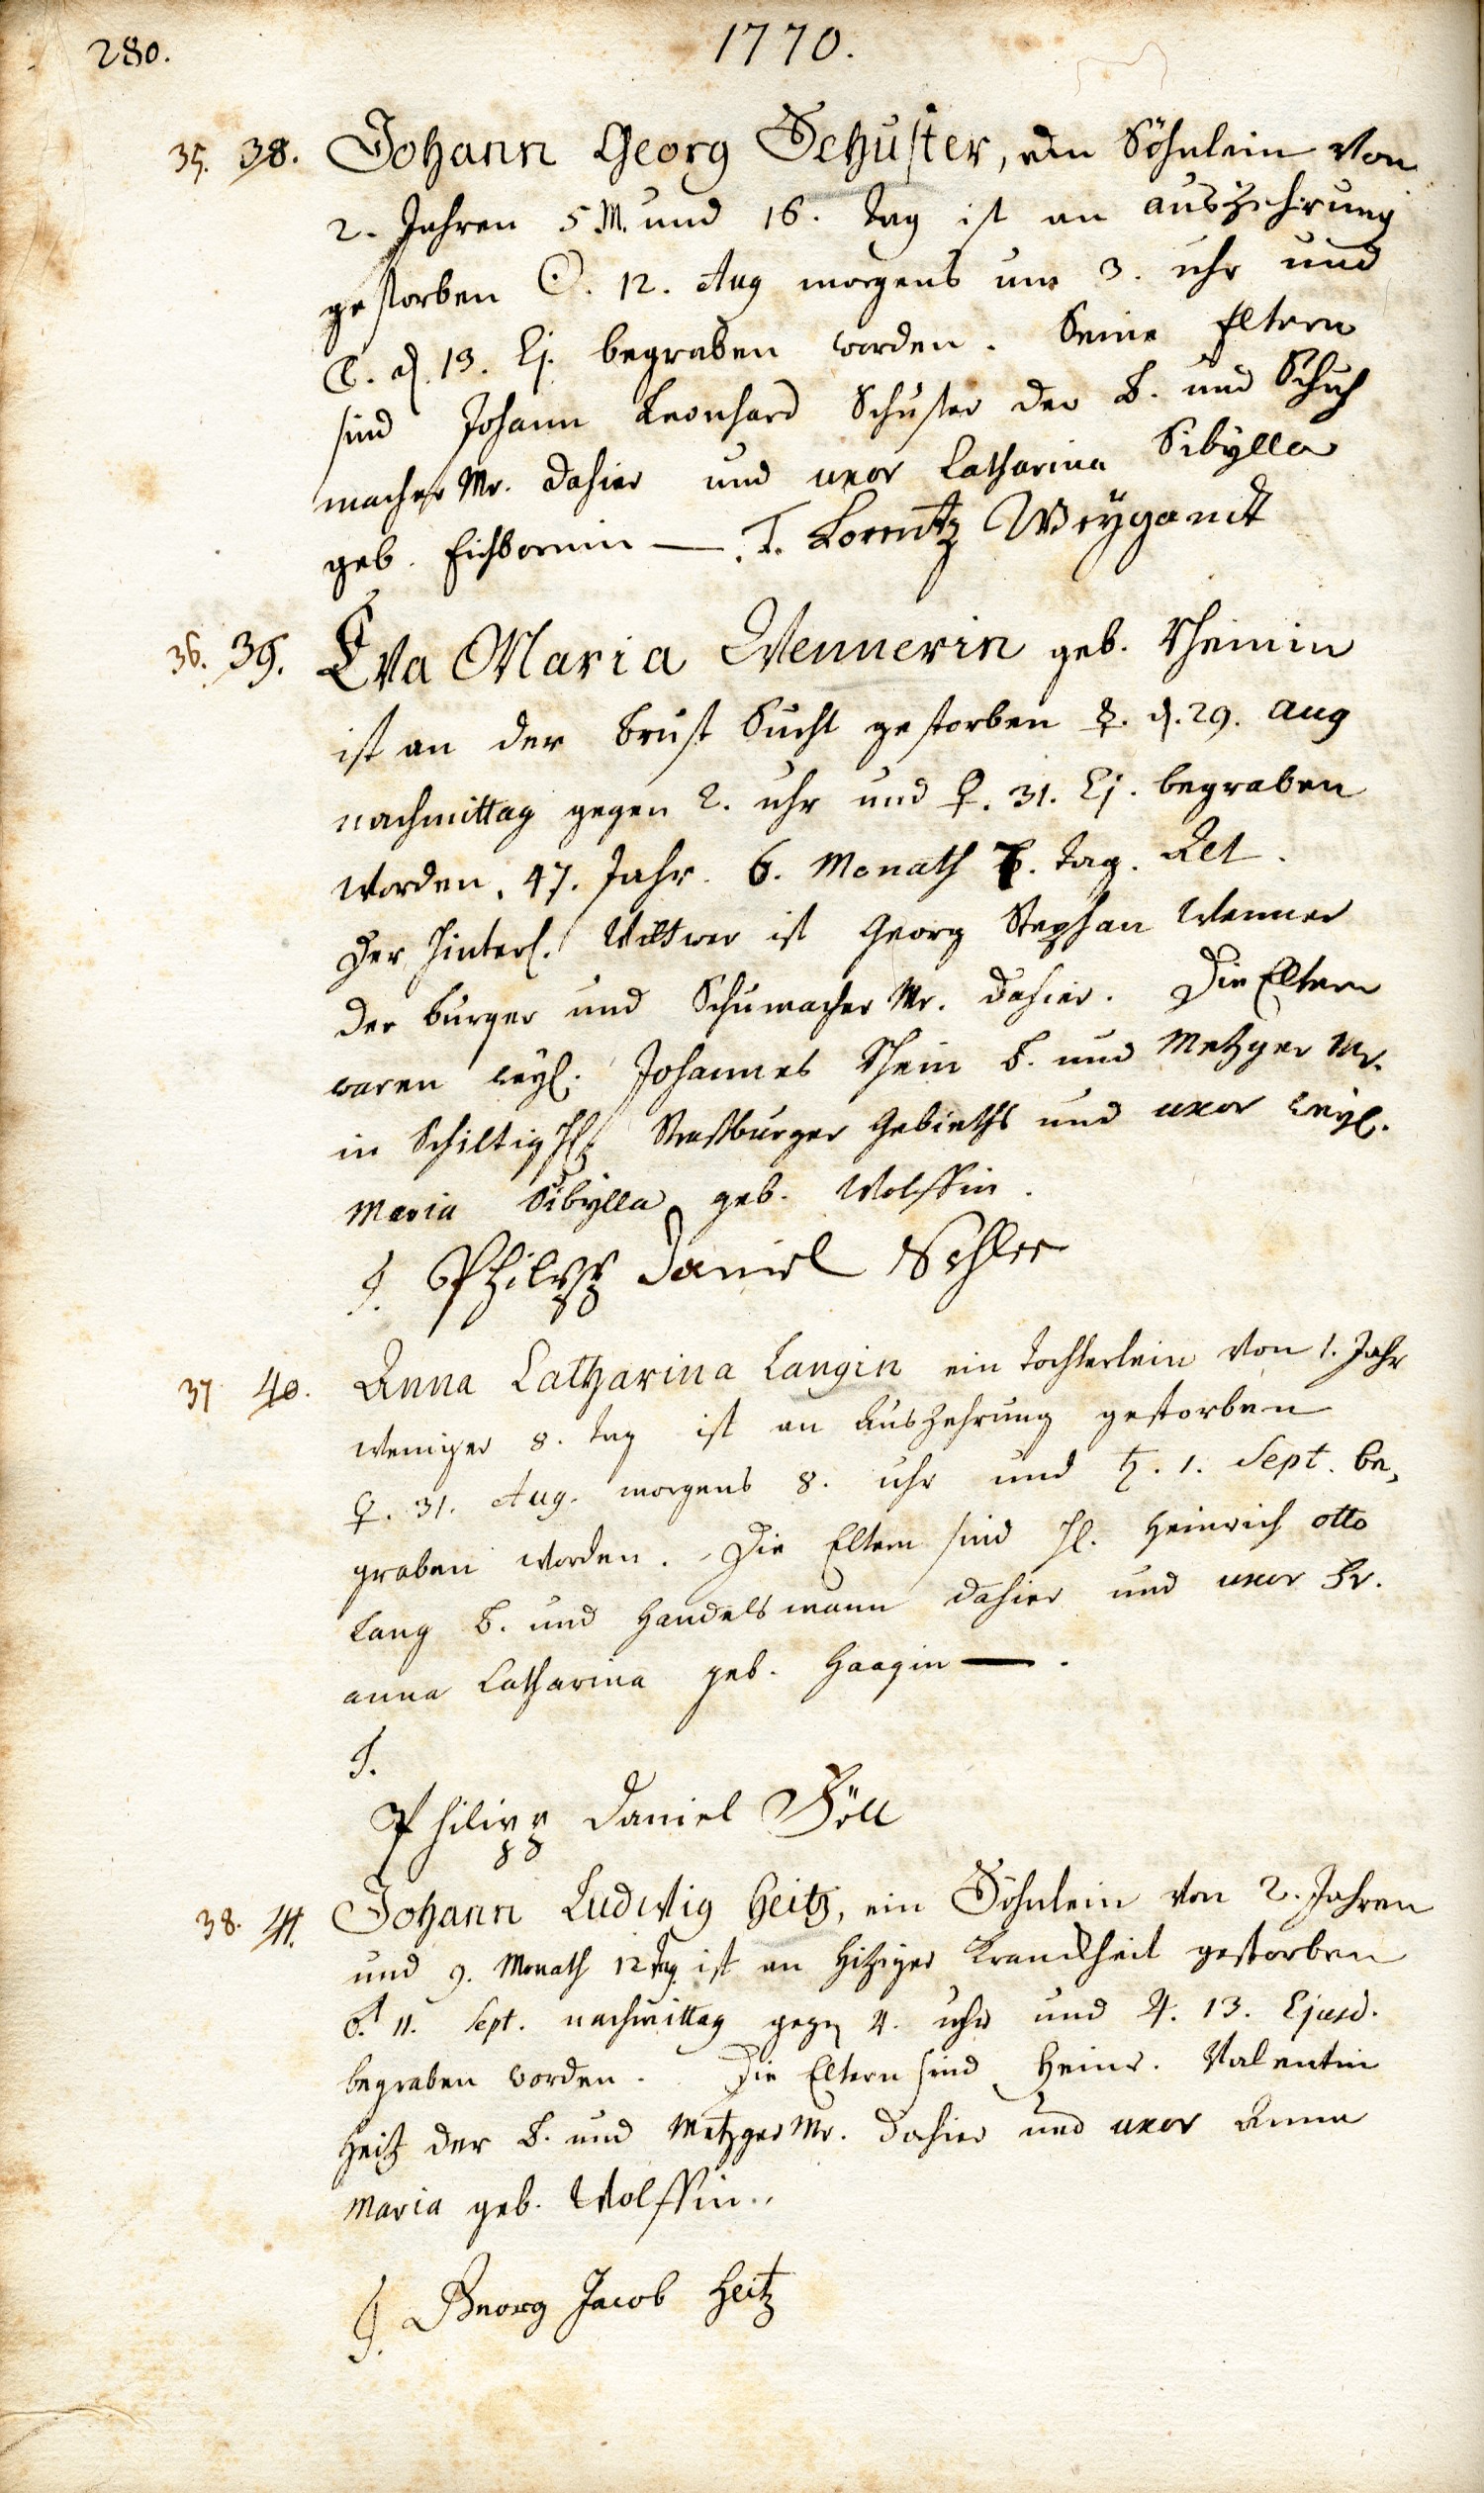 280.
1770.
35. 38. Johann Georg Schuster, ein Söhnlein von
2. Jahren 5 M. und 16. Tag ist an auszehrung
gestorben ☉. 12. Aug morgens um 3. uhr und
☾. d. 13. Ej. begraben worden. Seine Eltern
sind Johann Leonhard Schuster der B. und Schuh
macher Mr. dahier und uxor Catharina Sibylla
geb. Eichbornin — . T. Lorentz Weygandt
36. 39. Eva Maria Wennerin geb. Rheinin
ist an der Brust Sucht gestorben ☿. d. 29. aug
nachmittag gegen 2. uhr und ♀. 31. Ej. begraben
worden. 47. Jahr. 6. Monath Tag. Aet.
Der hinterl. Wittwer ist Georg Stephan Wenner
der burger und Schumacher Mr. dahier. Die Eltern
waren weyl. Johannes Rhein B. und Metzger Mr.
in Schiltigh. Straßburger Gebieths und uxor weyl.
Maria Sibylla geb. Wolffin.
T. Philipp Daniel Sohler
37 40. Anna Catharina Langin ein Tochterlein von 1. Jahr
weniger 8. Tag ist an Auszehrung gestorben
♀. 31. Aug. morgens 8. uhr und ♄. 1. Sept. be,
graben worden. Die Eltern sind H. Heinrich Otto
Lang B. und Handelsmann dahier und uxor Fr.
anna Catharina geb. Haagin — .
T.
Philipp Daniel Böll
38. 41. Johann Ludwig Heitz, ein Söhnlein von 2. Jahren
und 9. Monath 12 Tag ist an hitziger Kranckheit gestorben
♂. 11. Sept. nachmittag gegen 4. uhr und ♃. 13. Ejusd.
begraben worden. Die Eltern sind Heinr. Valentin
Heitz der B. und Metzger Mr. dahier und uxor Anna
Maria geb. Wolffin.
T. Georg Jacob Heitz